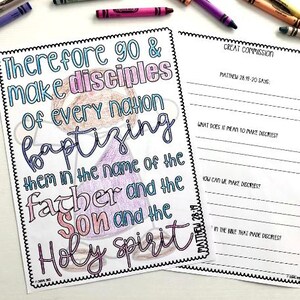 Therefore go &
make disciples
of every nation
baptizing
them in the name of the
father and the
Son and the
Holy Spirit
MATTHEW 28:19
GREAT COMMISSION
MATTHEW 28:19-20 SAYS:
WHAT DOES IT MEAN TO MAKE DISCIPLES?
HOW CAN WE MAKE DISCIPLES?
IN THE BIBLE THAT MADE DISCIPLES?